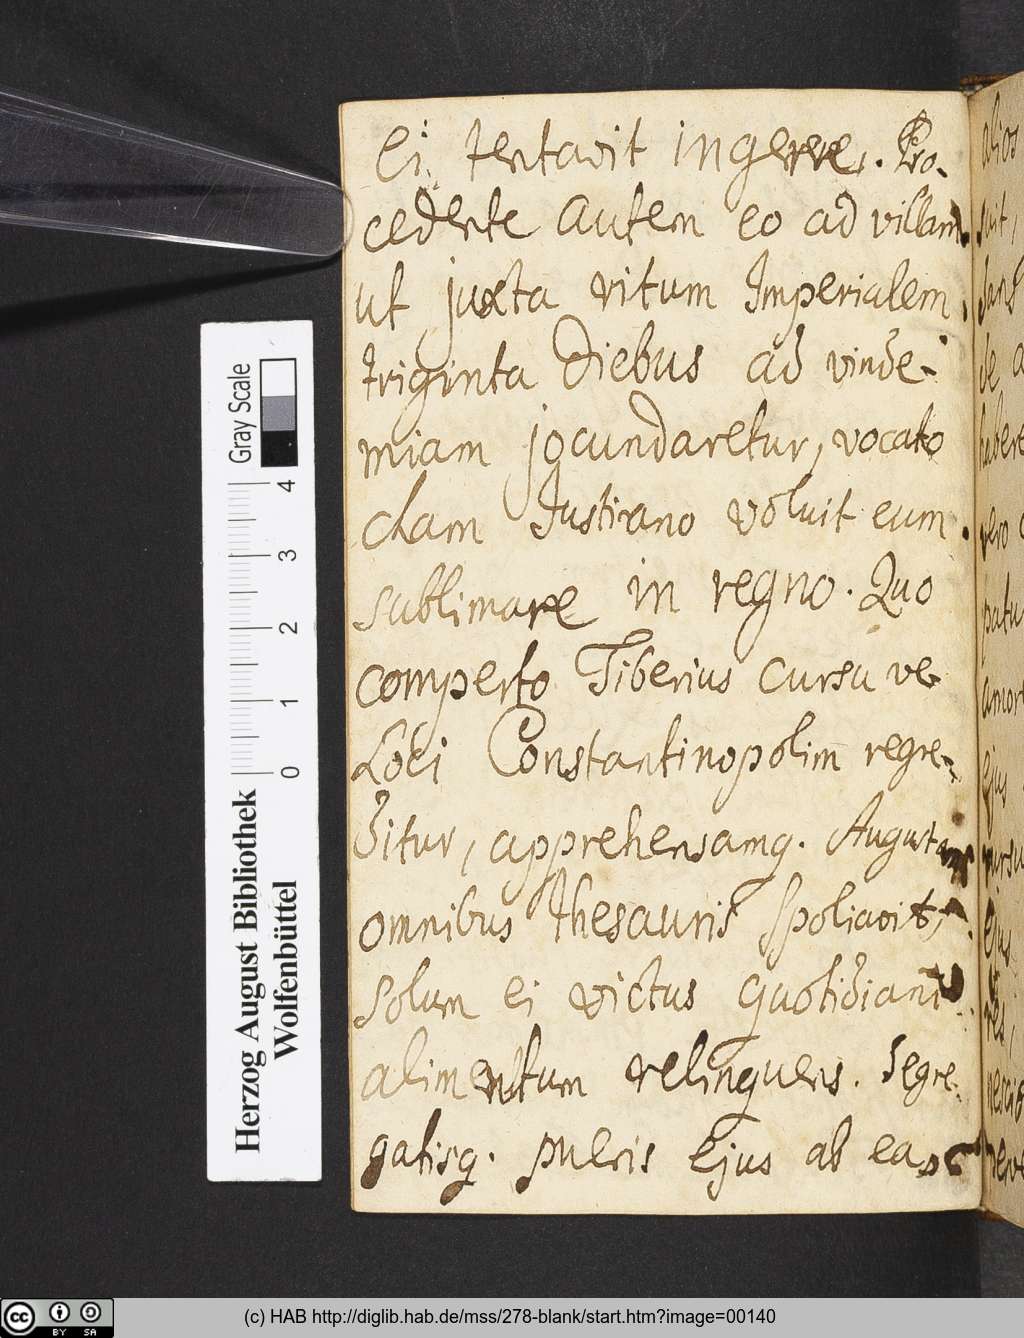 ei tentavit ingerere. Pro-
cedente autem eo ad villam
ut juxta ritum Imperialem
triginta diebus ad vinde-
miam jocundaretur, vocato
clam Justiano voluit eum
sublimare in regno. Quo
comperto Tiberius cursu ve-
loci Constantinopolim regre-
ditur, apprehensamq. Augustam
omnibus thesauris spoliavit,
solum ei victus quotidiani
alimentum relinquens. Segre-
gatisq. pueris ejus ab ea
alios
Gray Scale
4
3
2
1
0
Herzog August Bibliothek
Wolfenbüttel
CC BY SA
(c) HAB http://diglib.hab.de/mss/278-blank/start.htm?image=00140